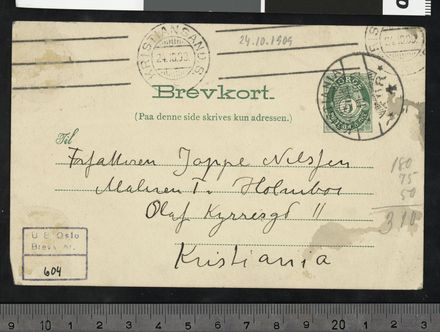 KRISTIANSAND S.
24.10.09
24.10.1909
Brevkort.
(Paa denne side skrives kun adressen.)
5
Til
Forfatteren Jappe Nilssen
Maleren T. Holmboe
Olaf Kyrresgd 11
Kristiania
180
75
50
310
U B Oslo
Brevs. nr.
604
10 9 8 7 6 5 4 3 2 1 0 1 2 3